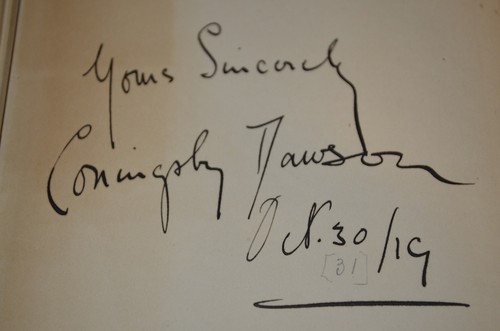 Yours Sincerely
Coningsby Dawson
Oct. 30/19
[31]